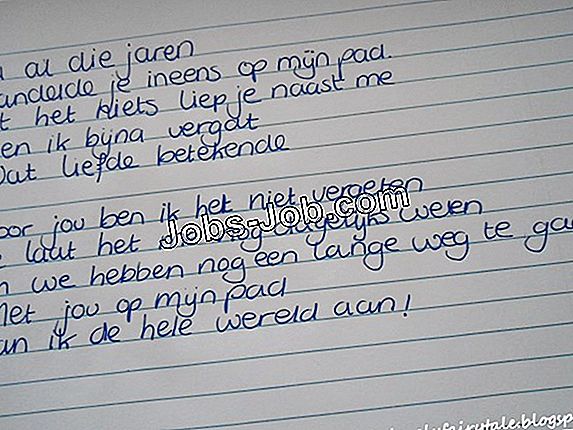 al die jaren
andelde je ineens op mijn pad.
t het Niets liep je naast me
en ik bijna vergat
at liefde betekende
oor jou ben ik het niet vergeten
laat het dagelijks weten
n we hebben nog een lange weg te gaa
et jou op mijn pad
an ik de hele wereld aan!
Jobs-Job.com
lyfairytale.blogsp